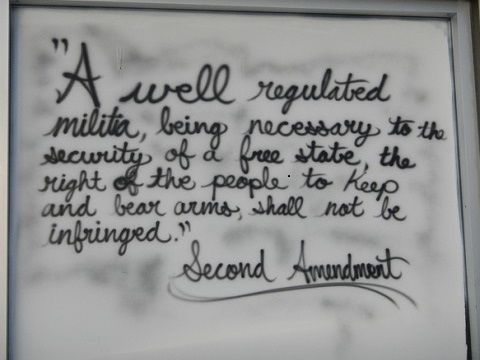 "A well regulated
milita, being necessary to the
security of a free state, the
right of the people to keep
and bear arms, shall not be
infringed."
Second Amendment